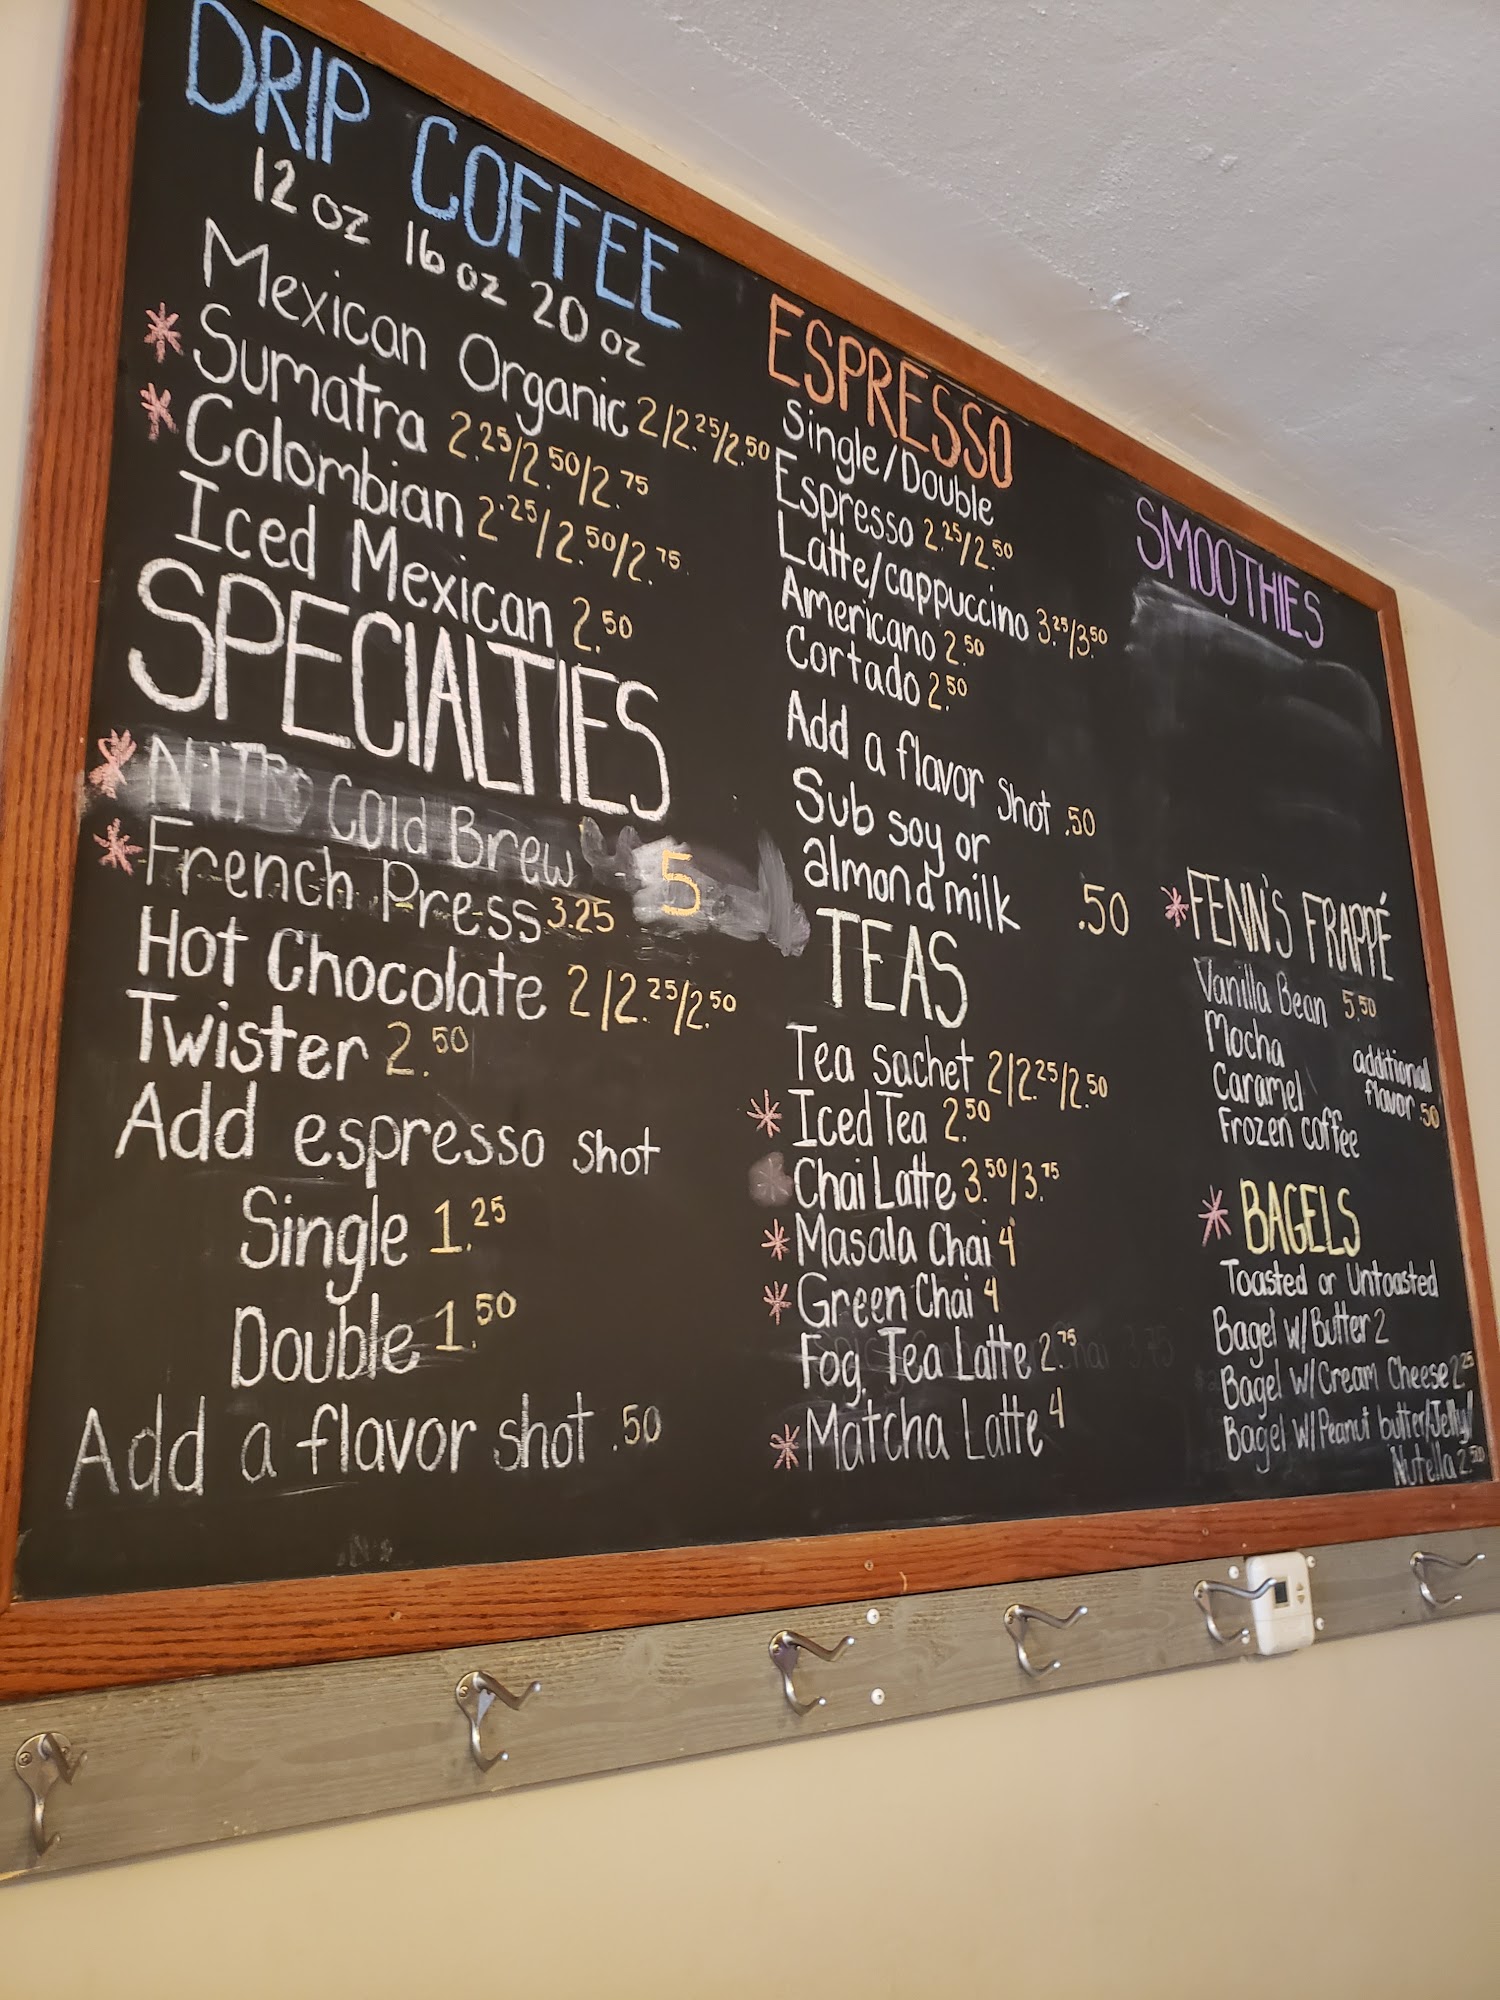 DRIP COFFEE
12 oz 16 oz 20 oz
Mexican Organic 2/2.25/2.50
* Sumatra 2.25/2.50/2.75
* Colombian 2.25/2.50/2.75
Iced Mexican 2.50
SPECIALTIES
* NITRO Cold Brew 5
* French Press 3.25
Hot Chocolate 2/2.25/2.50
Twister 2.50
Add espresso shot
Single 1.25
Double 1.50
Add a flavor shot .50
ESPRESSO
Single/Double
Espresso 2.25/2.50
Latte/cappuccino 3.25/3.50
Americano 2.50
Cortado 2.50
Add a flavor shot .50
Sub soy or
almond milk .50
TEAS
Tea sachet 2/2.25/2.50
* Iced Tea 2.50
Chai Latte 3.50/3.75
* Masala Chai 4
* Green Chai 4
Fog Tea Latte 2.75
* Matcha Latte 4
SMOOTHIES
* FENN'S FRAPPÉ
Vanilla Bean 5.50
Mocha
Caramel
Frozen coffee
additional
flavor .50
* BAGELS
Toasted or Untoasted
Bagel w/Butter 2
Bagel w/Cream Cheese 2.25
Bagel w/Peanut butter/Jelly/
Nutella 2.50